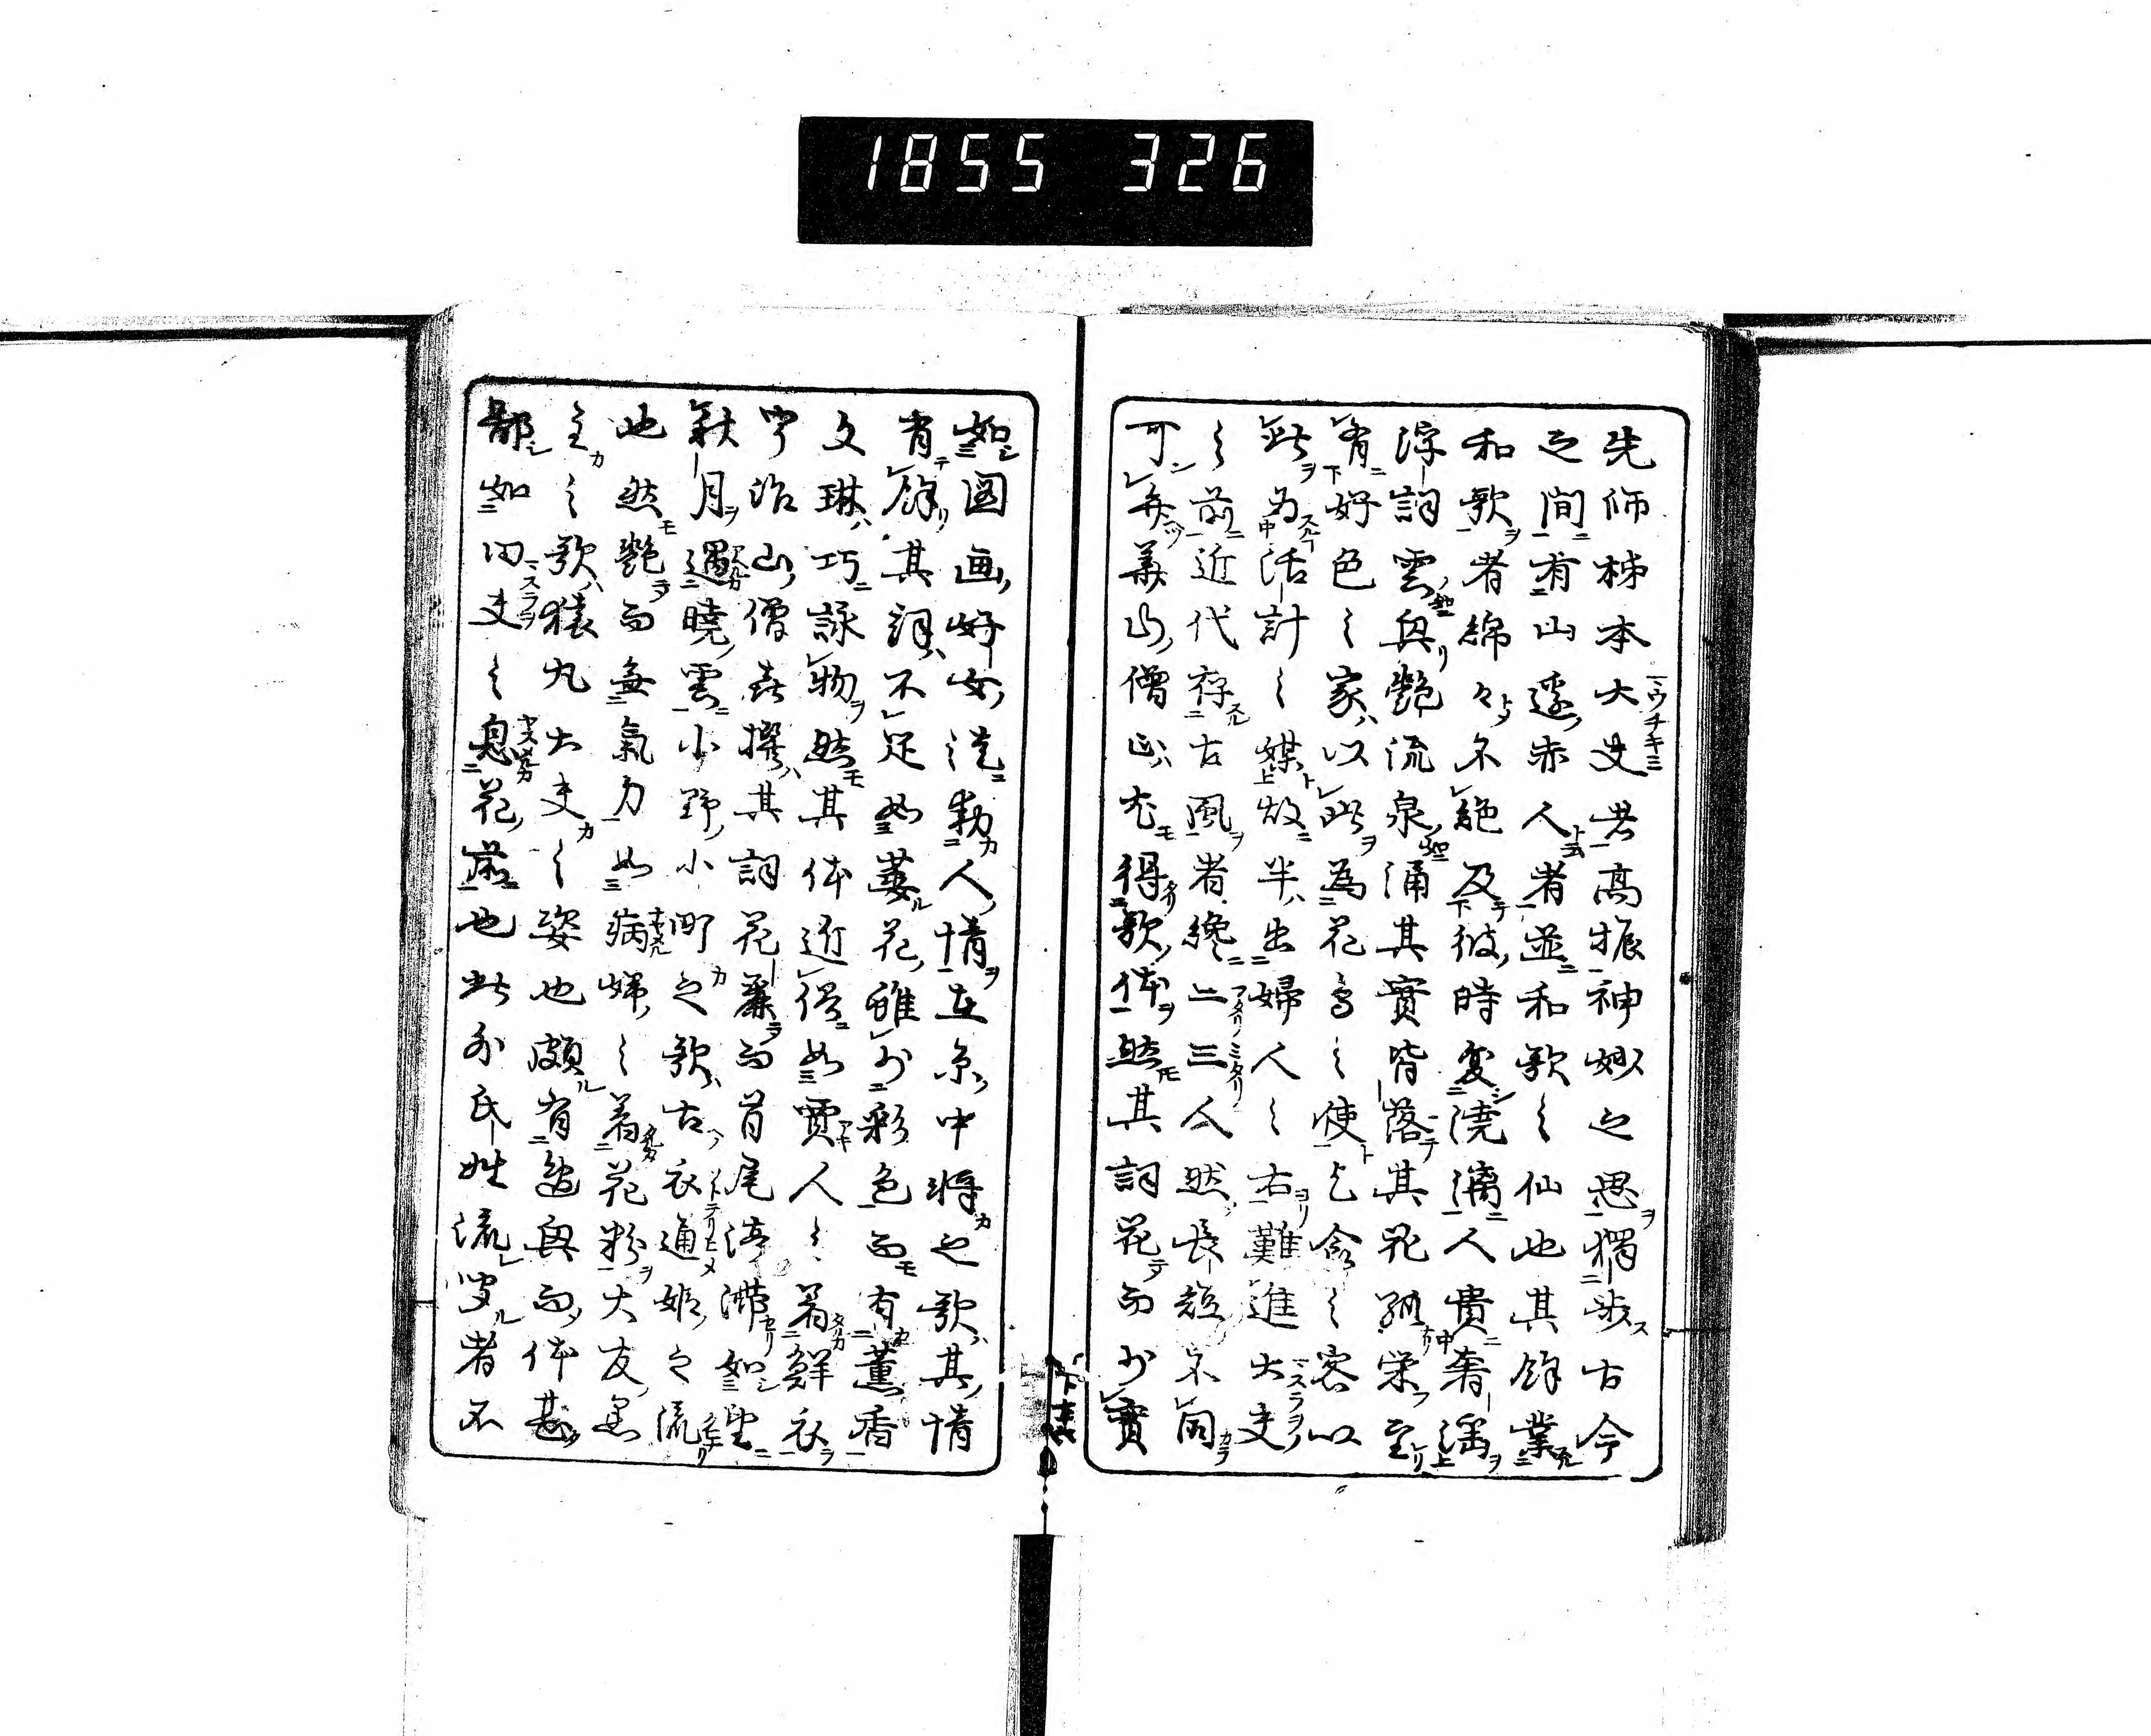 1855 326
先師柿本大夫者高振神妙之思獨歩古今
之間有山邊赤人者並和歌之仙也其餘業
和歌者綿々不絶及彼時変澆漓人貴奢淫
浮詞雲興艶流泉涌其實皆落其花孤栄至
有好色之家以此為花鳥之使乞食之客以
此為活計之媒故半出婦人之右難進大夫
之前近代存古風者纔二三人然長短不同
可弁華山僧正尤得歌体然其詞花而少實
如図画好女徒動人情在原中将之歌其情
有餘其詞不足如萎花雖少彩色而有薫香
文琳巧詠物然其体近俗如賈人之着鮮衣
宇治山僧喜撰其詞花麗而首尾渟滞如望
秋月遇暁雲小野小町之歌古衣通姫之流
也然艶而無氣力如病婦之着花粉大友黒
主之歌猿丸大夫之姿也頗有逸興而体甚
鄙如田夫之息花前也此外氏姓流聞者不